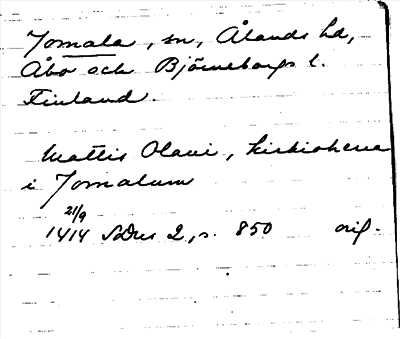 Jomala, sn, Ålands hd,
Åbo och Björneborgs l.
Finland.
Mattis Olaui, kirkioherra
i Jomalum
21/9
1414 SDns 2, s. 850 orig.